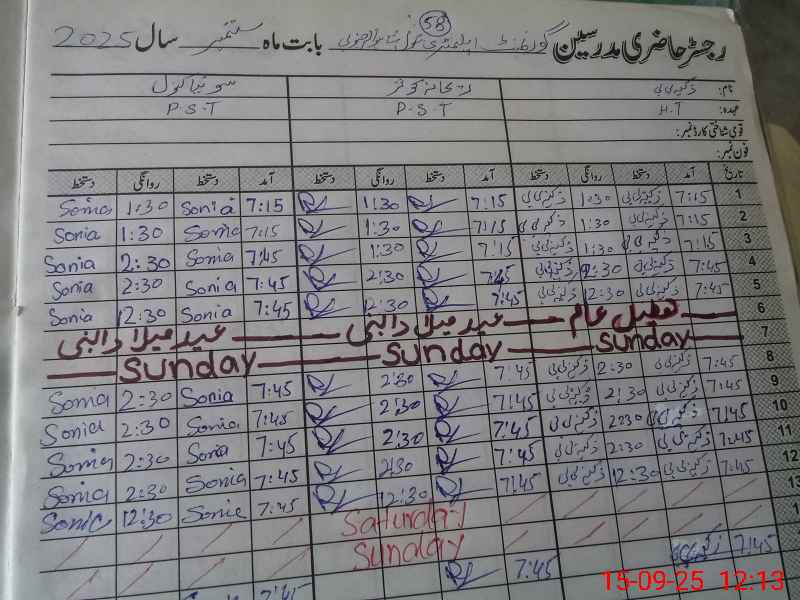 58
رجسٹر حاضری مدرسین گورنمنٹ ایلیمنٹری سکول بابت ماہ ستمبر سال 2025
نام: ذکیہ بی بی ریحانہ کوثر سونیا کنول
عہدہ: H.T P.S.T P.S.T
قومی شناختی کارڈ نمبر:
فون نمبر:
تاریخ آمد دستخط روانگی دستخط آمد دستخط روانگی دستخط آمد دستخط روانگی دستخط
1 7:15 ذکیہ بی بی 1:30 ذکیہ بی بی 7:15 1:30 7:15 Sonia 1:30 Sonia
2 7:15 ذکیہ بی بی 1:30 ذکیہ بی بی 7:15 1:30 7:15 Sonia 1:30 Sonia
3 7:15 ذکیہ بی بی 1:30 ذکیہ بی بی 7:15 1:30 7:45 Sonia 2:30 Sonia
4 7:45 ذکیہ بی بی 2:30 ذکیہ بی بی 7:45 2:30 7:45 Sonia 2:30 Sonia
5 7:45 ذکیہ بی بی 12:30 ذکیہ بی بی 7:45 12:30 7:45 Sonia 12:30 Sonia
6 تعطیل عام عید میلاد النبی عید میلاد النبی
7 Sunday Sunday Sunday
8 7:45 ذکیہ بی بی 2:30 ذکیہ بی بی 7:45 2:30 7:45 Sonia 2:30 Sonia
9 7:45 ذکیہ بی بی 2:30 ذکیہ بی بی 7:45 2:30 7:45 Sonia 2:30 Sonia
10 7:45 ذکیہ بی بی 2:30 ذکیہ بی بی 7:45 2:30 7:45 Sonia 2:30 Sonia
11 7:45 ذکیہ بی بی 2:30 ذکیہ بی بی 7:45 2:30 7:45 Sonia 2:30 Sonia
12 7:45 ذکیہ بی بی 12:30 ذکیہ بی بی 7:45 12:30 7:45 Sonia 12:30 Sonia
13 Saturday
Sunday
7:45 7:45 7:45
15-09-25 12:13